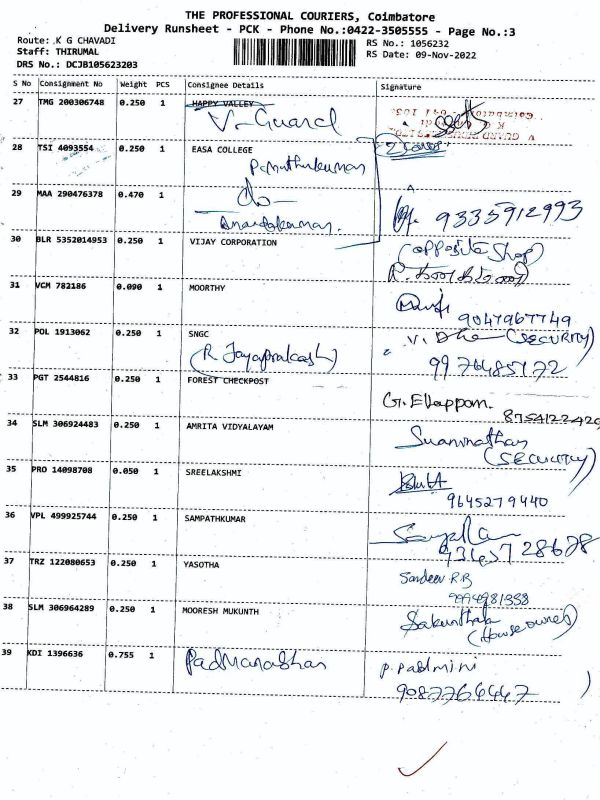 THE PROFESSIONAL COURIERS, Coimbatore
Delivery Runsheet - PCK - Phone No.:0422-3505555 - Page No.:3
Route: K G CHAVADI
RS No.: 1056232
Staff: THIRUMAL
RS Date: 09-Nov-2022
DRS No.: DCJB105623203
S No Consignment No Weight PCS Consignee Details Signature
27 TMG 200306748 0.250 1 HAPPY VALLEY
V-Guard
28 TSI 4093554 0.250 1 EASA COLLEGE
P. Muthukumar
29 MAA 290476378 0.470 1
9335912993
30 BLR 5352014953 0.250 1 VIJAY CORPORATION (opposite shop)
31 VCM 782186 0.090 1 MOORTHY
9047967749
32 POL 1913062 0.250 1 SNGC (SECURITY)
(R Jayaprakash) 9976485172
33 PGT 2544816 0.250 1 FOREST CHECKPOST
G. Ellappam.
8754122420
34 SLM 306924483 0.250 1 AMRITA VIDYALAYAM
(SECURITY)
35 PRO 14098708 0.050 1 SREELAKSHMI
9645279440
36 VPL 499925744 0.250 1 SAMPATHKUMAR
37 TRZ 122080653 0.250 1 YASOTHA Sandeev R.B
9994981338
38 SLM 306964289 0.250 1 MOORESH MUKUNTH Sakunthala
(House owner)
39 KDI 1396636 0.755 1 Padmanabhan P. Padmini
9087766447